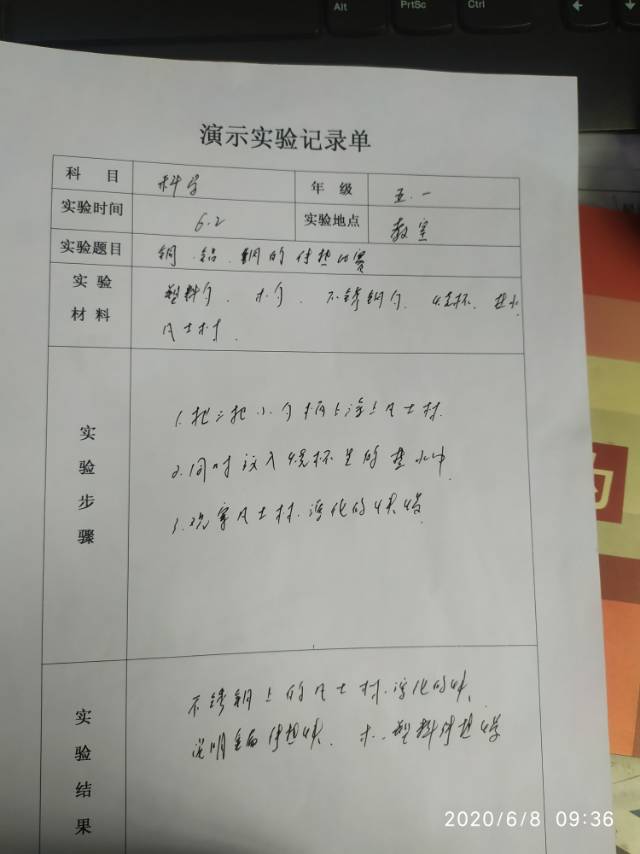 Alt PrtSc Ctrl
演示实验记录单
科 目 科学 年 级 五.一
实验时间 6.2 实验地点 教室
实验题目 铜、铝、钢的传热比赛
实 验 塑料勺、木勺、不锈钢勺、烧杯、热水
材 料 凡士林.
实验步骤
1.把三把小勺柄上涂上凡士林.
2.同时放入烧杯里的热水中
3.观察凡士林溶化的快慢
实验结果
不锈钢上的凡士林溶化的快,
说明金属传热快、木、塑料传热慢
2020/6/8 09:36